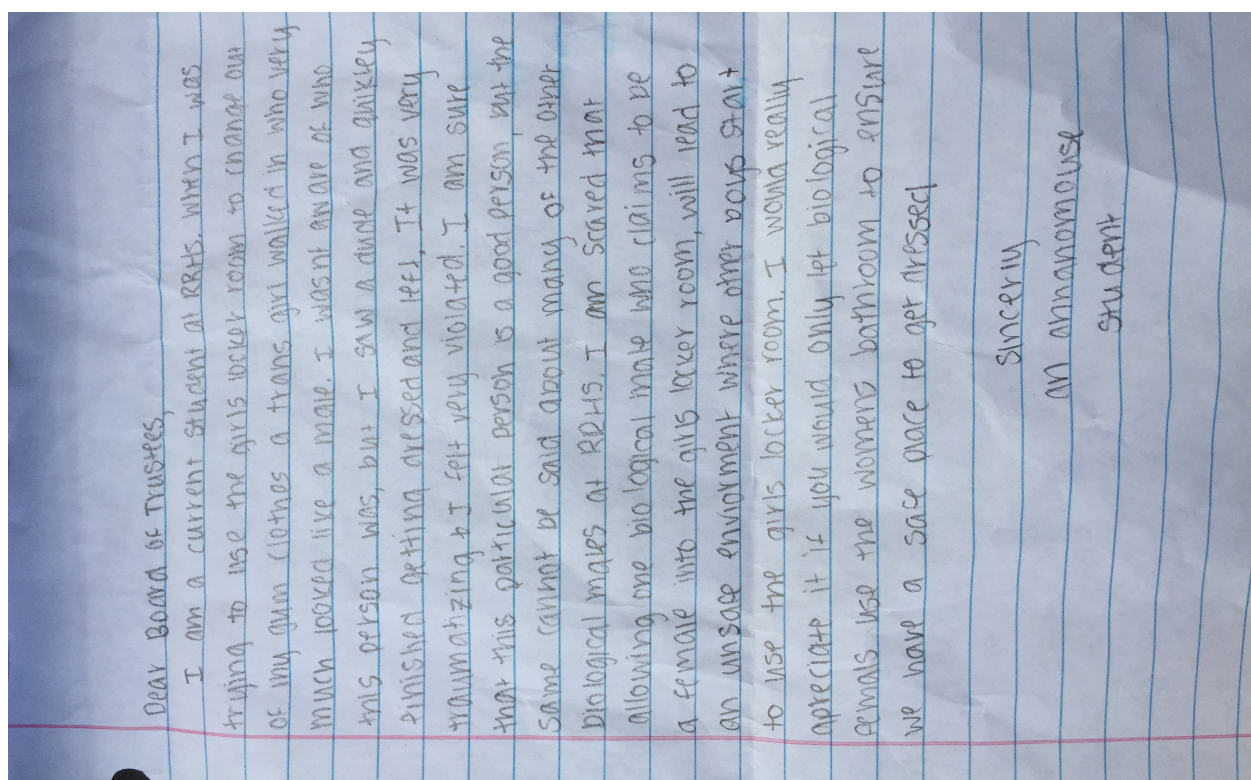 Dear Board of Trustees,
I am a current student at RRHS. When I was
trying to use the girls locker room to change out
of my gym clothes a trans girl walked in who very
much looked like a male. I wasnt aware of who
this person was, but I saw a dude and quikley
finished getting dressed and left. It was very
traumatizing & I felt very violated. I am sure
that this particular person is a good person, but the
same cannot be said about many of the other
biological males at RRHS. I am scared that
allowing one biological male who claims to be
a female into the girls locker room, will lead to
an unsafe enviorment where other boys start
to use the girls locker room. I would really
apreciate it if you would only let biological
femals use the womens bathroom to ensure
we have a safe place to get dressed
sincerly
an annanomouse
student